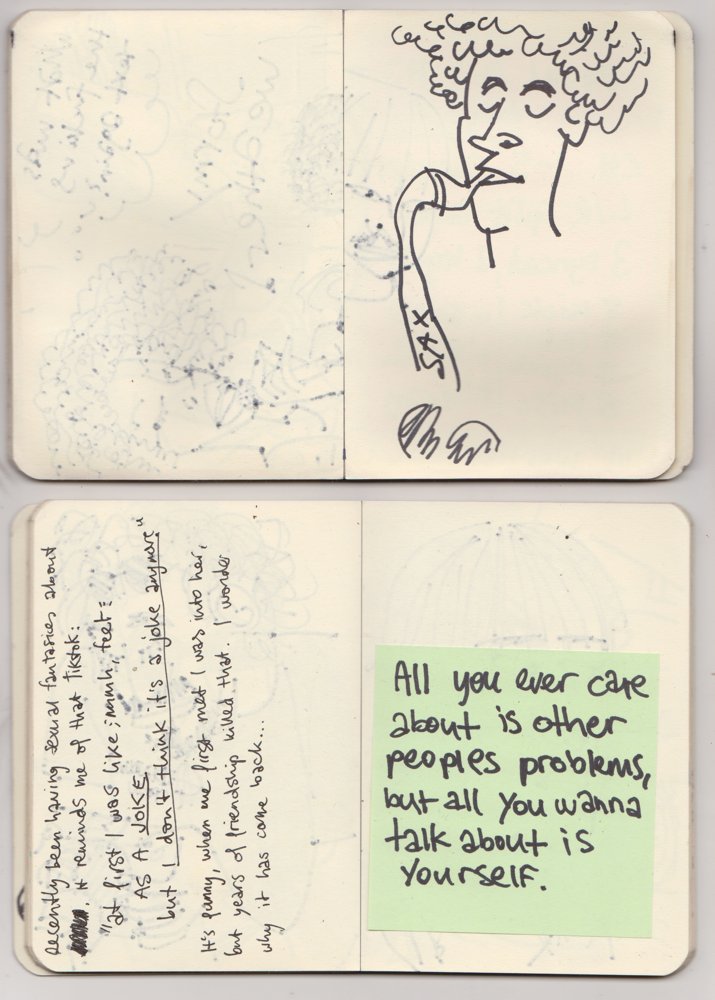 xxs
Recently been having sexual fantasies about
. It reminds me of that Tiktok:
"at first I was like ;nomh, feet;
AS A JOKE
but I don't think it's a joke anymore"
It's funny, when we first met I was into her,
but years of friendship killed that. I wonder
why it has come back...
All you ever care
about is other
peoples problems,
but all you wanna
talk about is
yourself.